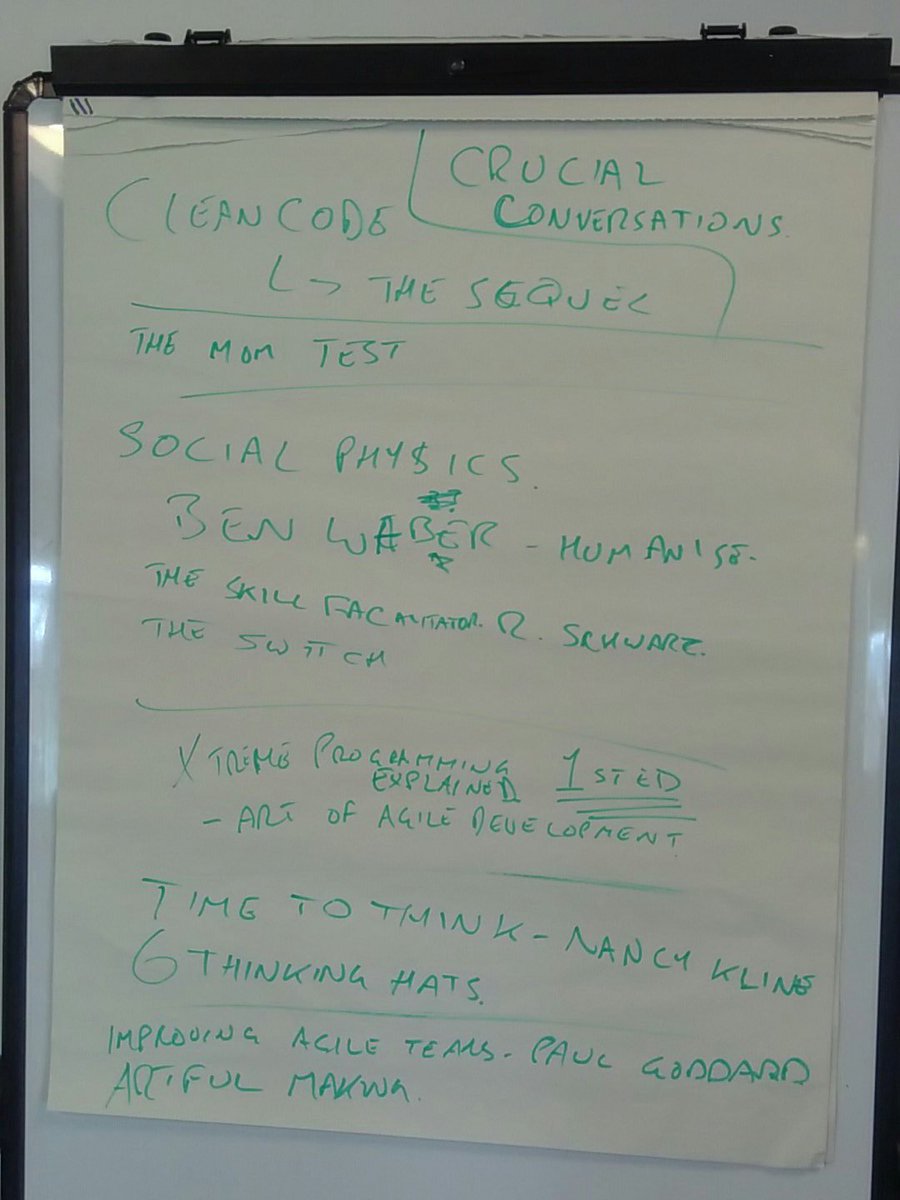 CRUCIAL
CONVERSATIONS.
CLEAN CODE
↳ THE SEQUEL
THE MOM TEST
SOCIAL PHYSICS.
BEN WABER - HUMANISE.
THE SKILL FACALITATOR. R. SCHWARZ.
THE SWITCH
XTREME PROGRAMMING
EXPLAINED 1STED
- ART OF AGILE DEVELOPMENT
TIME TO THINK - NANCY KLINE
6 THINKING HATS.
IMPROVING AGILE TEAMS - PAUL GODDARD
ARTFUL MAKING.